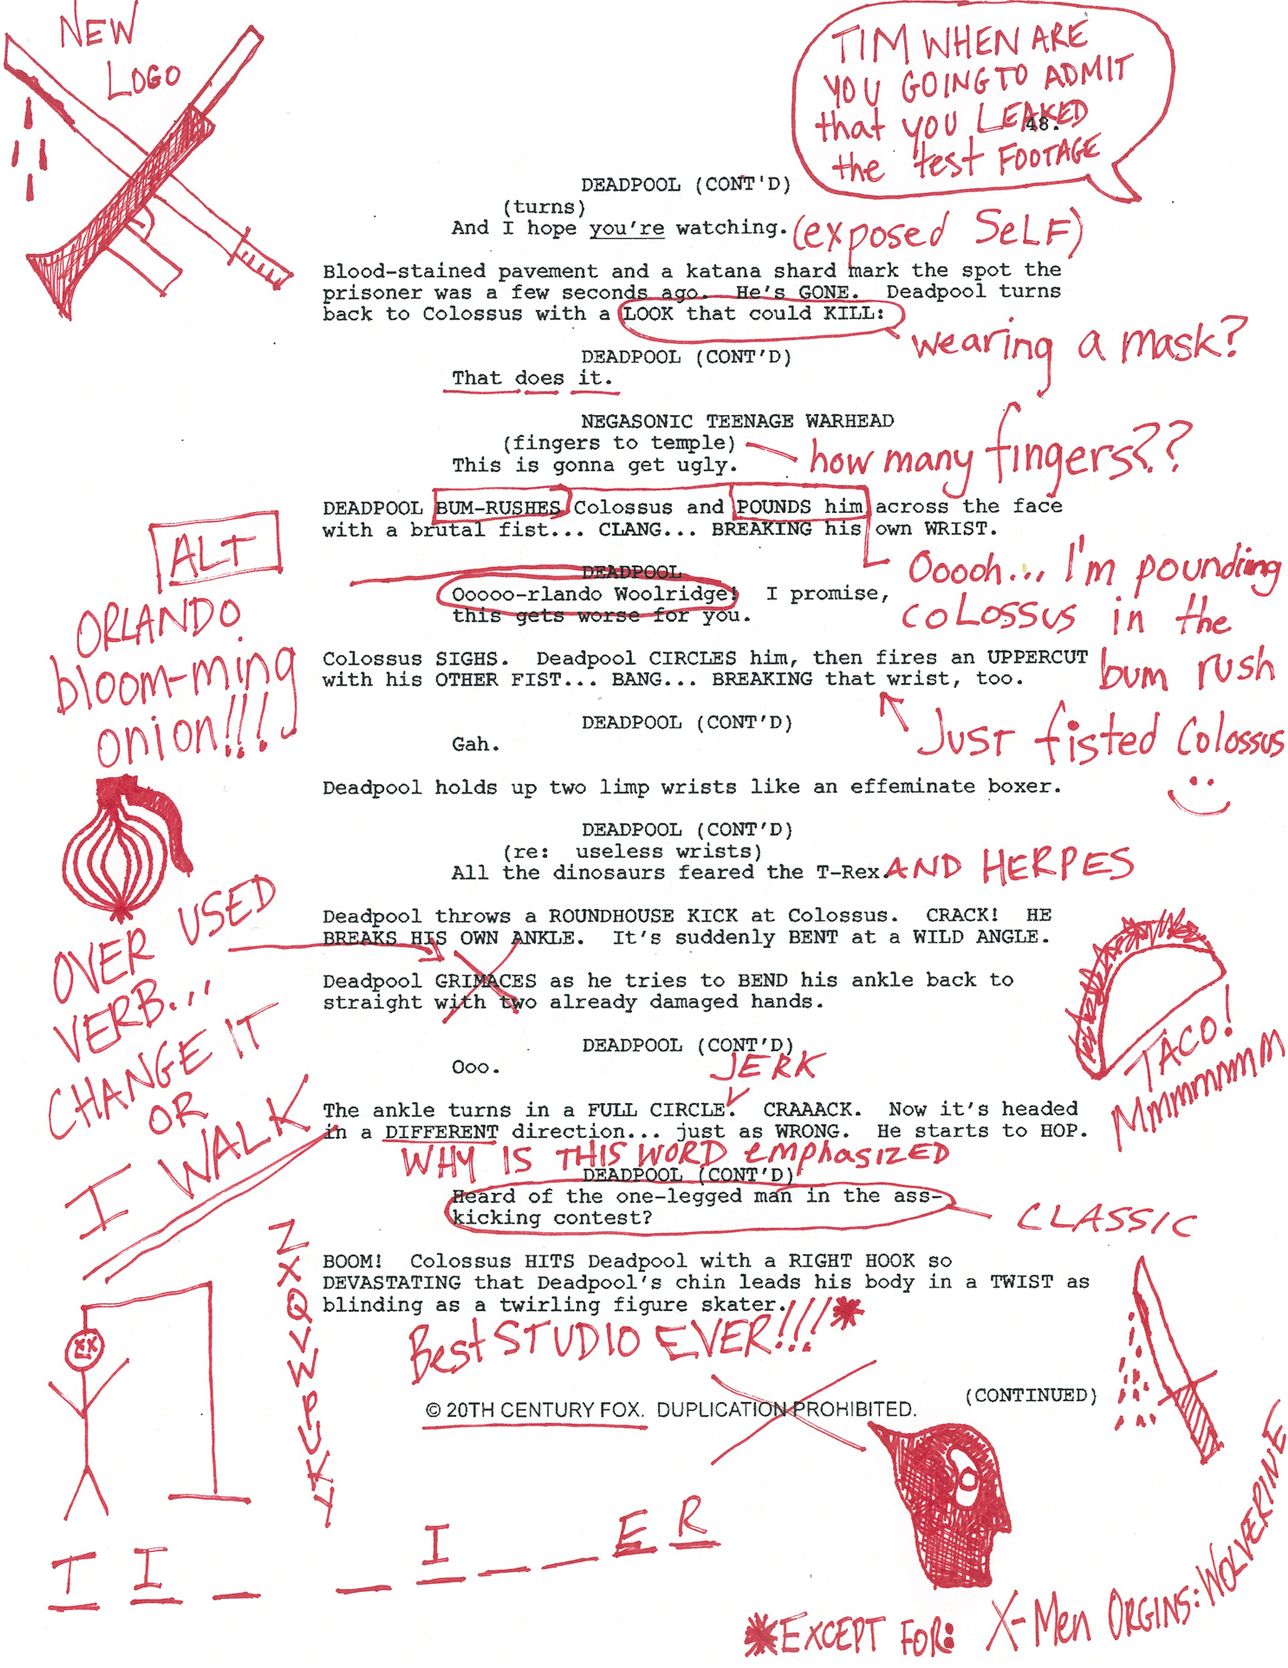 NEW
LOGO
TIM WHEN ARE
YOU GOING TO ADMIT
that you LEAKED
the test FOOTAGE
48.
DEADPOOL (CONT'D)
(turns)
And I hope you're watching. (exposed SeLF)
Blood-stained pavement and a katana shard mark the spot the
prisoner was a few seconds ago. He's GONE. Deadpool turns
back to Colossus with a LOOK that could KILL:
wearing a mask?
DEADPOOL (CONT'D)
That does it.
NEGASONIC TEENAGE WARHEAD
(fingers to temple)
how many fingers??
This is gonna get ugly.
DEADPOOL BUM-RUSHES Colossus and POUNDS him across the face
with a brutal fist... CLANG... BREAKING his own WRIST.
Ooooh... I'm pounding
coLossus in the
bum rush
ALT
ORLANDO
bloom-ming
onion!!!
DEADPOOL
Ooooo-rlando Woolridge! I promise,
this gets worse for you.
Colossus SIGHS. Deadpool CIRCLES him, then fires an UPPERCUT
with his OTHER FIST... BANG... BREAKING that wrist, too.
Just fisted Colossus
DEADPOOL (CONT'D)
Gah.
Deadpool holds up two limp wrists like an effeminate boxer.
DEADPOOL (CONT'D)
(re: useless wrists)
All the dinosaurs feared the T-Rex. AND HERPES
Deadpool throws a ROUNDHOUSE KICK at Colossus. CRACK! HE
BREAKS HIS OWN ANKLE. It's suddenly BENT at a WILD ANGLE.
OVER USED
VERB...
CHANGE IT
OR
I WALK
Deadpool GRIMACES as he tries to BEND his ankle back to
straight with two already damaged hands.
TACO!
Mmmmmmm
DEADPOOL (CONT'D)
Ooo.
JERK
The ankle turns in a FULL CIRCLE. CRAAACK. Now it's headed
in a DIFFERENT direction... just as WRONG. He starts to HOP.
WHY IS THIS WORD emphasized
DEADPOOL (CONT'D)
Heard of the one-legged man in the ass-
kicking contest?
CLASSIC
BOOM! Colossus HITS Deadpool with a RIGHT HOOK so
DEVASTATING that Deadpool's chin leads his body in a TWIST as
blinding as a twirling figure skater.
Best STUDIO EVER!!!*
(CONTINUED)
© 20TH CENTURY FOX. DUPLICATION PROHIBITED.
NXQVWPUKY
T I _ _ I _ _ E R
*EXCEPT FOR: X-Men ORGINS: WOLVERINE